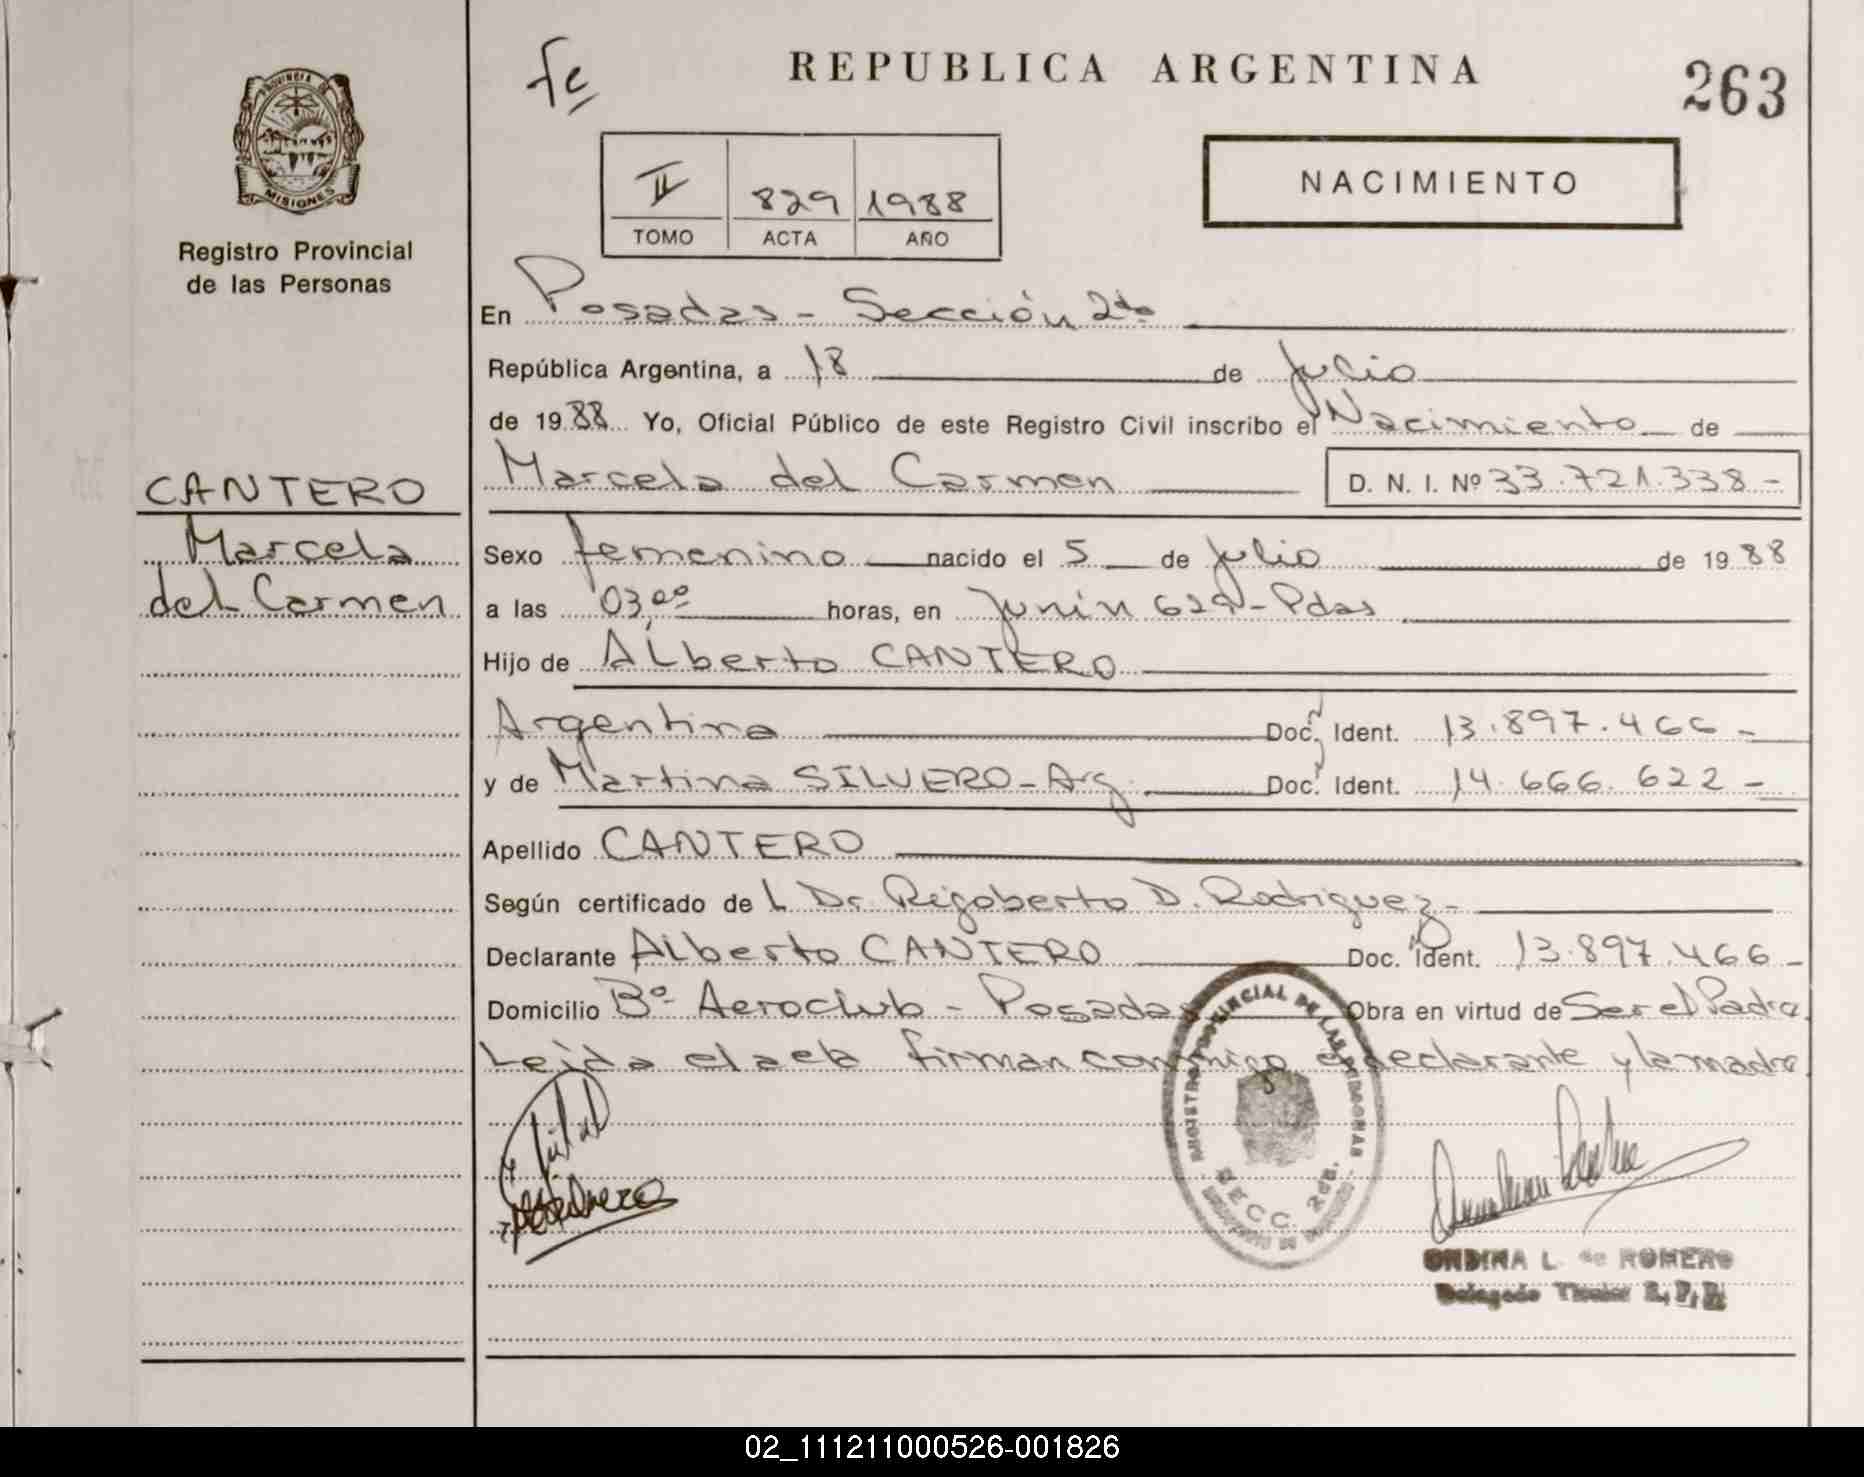 fc
REPUBLICA ARGENTINA
263
PROVINCIA DE
MISIONES
Registro Provincial
de las Personas
II 829 1988
TOMO ACTA AÑO
NACIMIENTO
En Posadas - Sección 2da
República Argentina, a 18 de Julio
de 1988 Yo, Oficial Público de este Registro Civil inscribo el Nacimiento de
Marcela del Carmen D. N. I. Nº 33.721.338-
CANTERO
Marcela
del Carmen
Sexo femenino nacido el 5 de Julio de 1988
a las 03,00 horas, en Junín 629 - Pdas
Hijo de Alberto CANTERO
Argentina Doc. Ident. 13.897.466-
y de Martina SILVERO - Arg. Doc. Ident. 14.666.622-
Apellido CANTERO
Según certificado de L Dr. Rigoberto D. Rodriguez-
Declarante Alberto CANTERO Doc. Ident. 13.897.466-
Domicilio Bº Aeroclub - Posadas Obra en virtud de Ser el Padre
Leida el acta firman conmigo el declarante y la madre
REGISTRO PROVINCIAL DE LAS PERSONAS
SECC. 2da.
ONDINA L. de ROMERO
Delegado Titular R.P.P.
02_111211000526-001826